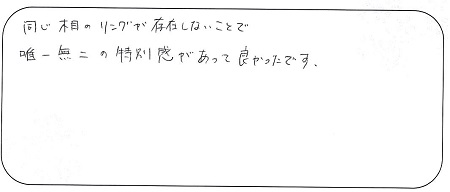 同じ相のリングが存在しないことで
唯一無二の特別感があって良かったです。